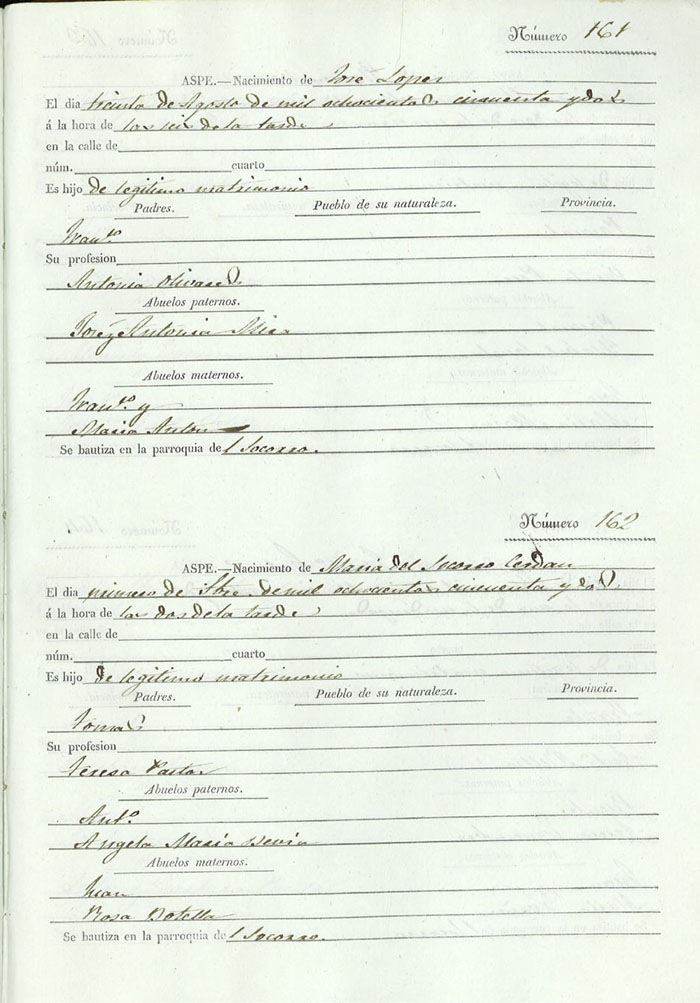 Número 161
ASPE.—Nacimiento de José Lopez
El dia treinta de Agosto de mil ochocientos cincuenta y dos
á la hora de las seis de la tarde
en la calle de
núm. cuarto
Es hijo de legitimo matrimonio
Padres. Pueblo de su naturaleza. Provincia.
Franco.
Su profesion
Antonia Olivares
Abuelos paternos.
José y Antonia Mira
Abuelos maternos.
Franco. y
Maria Anton
Se bautiza en la parroquia del Socorro.
Número 162
ASPE.—Nacimiento de Maria del Socorro Cerdan
El dia primero de Stbre. de mil ochocientos cincuenta y dos
á la hora de las dos de la tarde
en la calle de
núm. cuarto
Es hijo de legitimo matrimonio
Padres. Pueblo de su naturaleza. Provincia.
Tomas
Su profesion
Teresa Pastor
Abuelos paternos.
Anto.
Angela Maria
Abuelos maternos.
Juan
Rosa Botella
Se bautiza en la parroquia del Socorro.